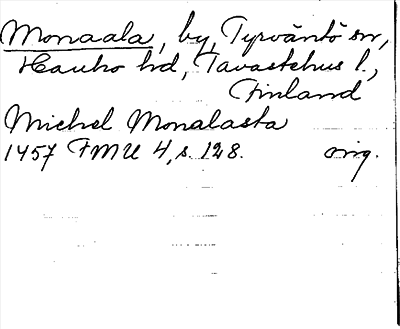 Monaala, by, Tyrväntö sn,
Hauho hd, Tavastehus l.,
Finland
Michel Monalasta
1457 FMU 4, s. 128. orig.